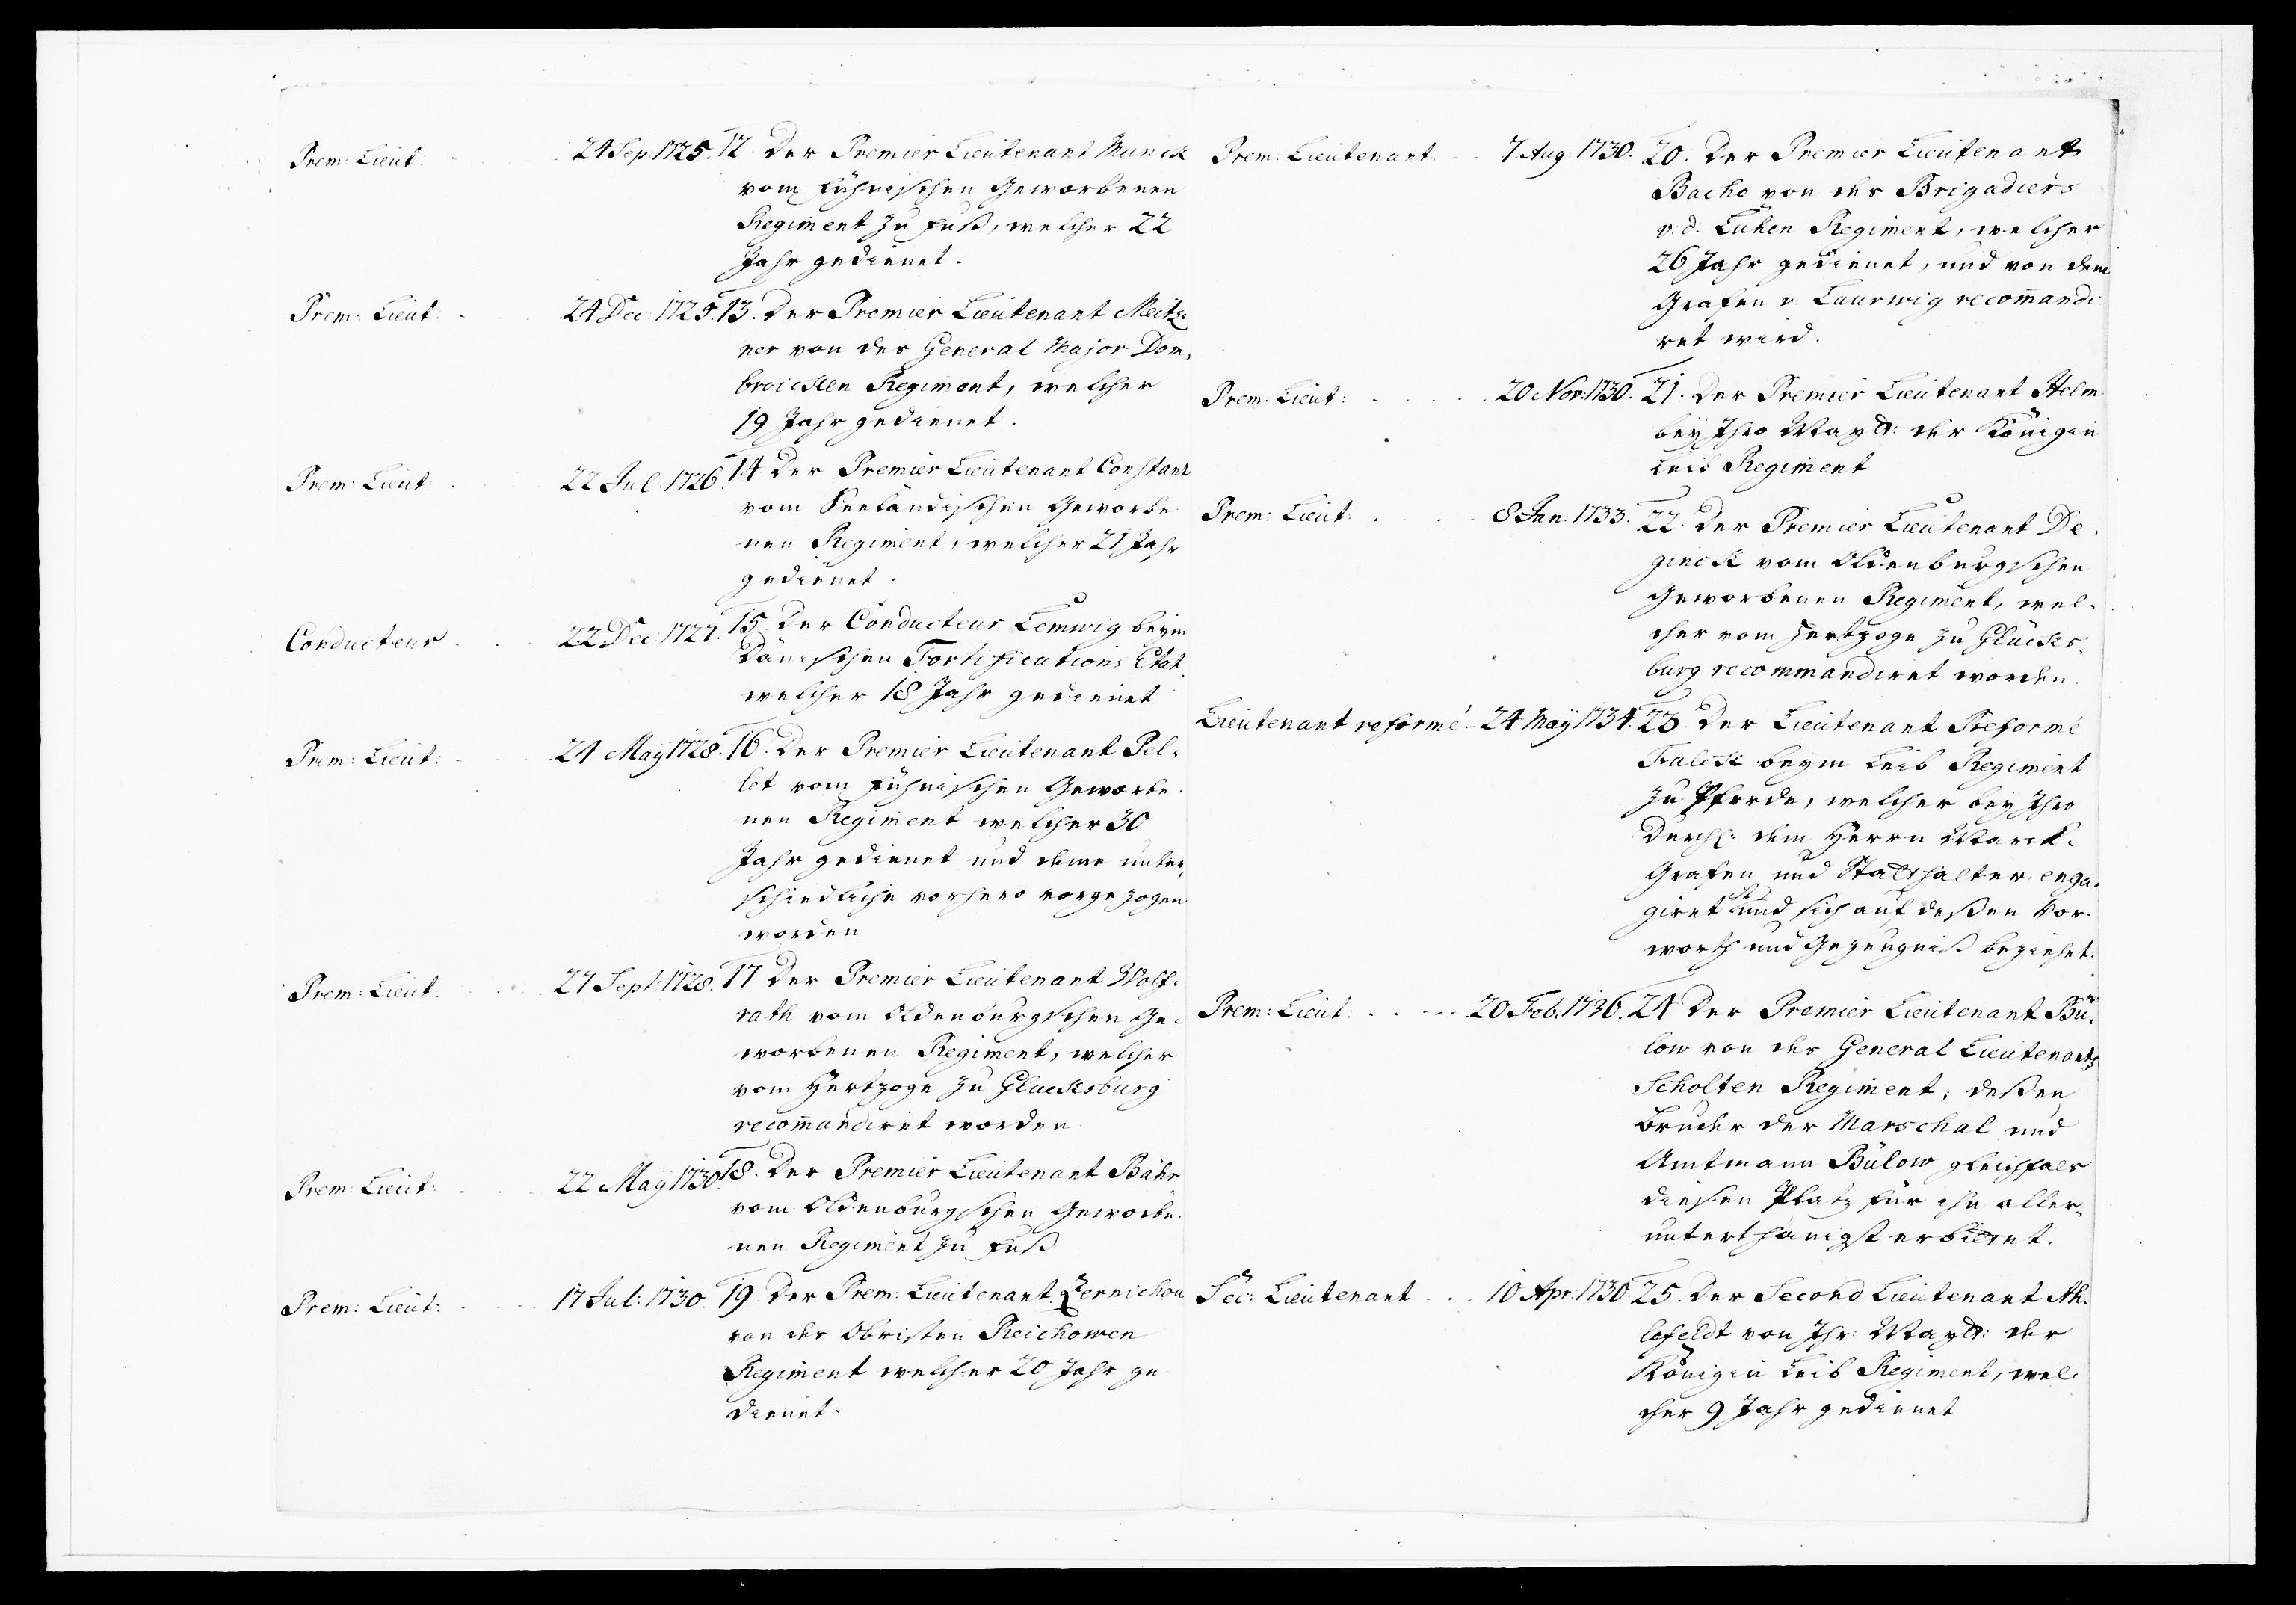 Prem: Lieut: 24 Sep. 1725. 12 Der Premier Lieutenant Munck
vom Fühnischen Geworbenen
Regiment zu Fuß, welcher 22
Jahr gedienet.
Prem: Lieut. 24 Dec 1725. 13. Der Premier Lieutenant Meitz¬
ner von des General Major Dom¬
broicken Regiment, welcher
19 Jahr gedienet.
Prem: Lieut 22 Jul. 1726. 14 Der Premier Lieutenant Constant
vom Seeländischen Geworbe
nen Regiment, welcher 21 Jahr
gedienet.
Conducteur 22 Dec 1727. 15 Der Conducteur Lemwig beym
Dänischen Fortifications Etat,
welcher 18 Jahr gedienet
Prem: Lieut: 24 May 1728. 16. Der Premier Lieutenant Pel¬
let vom Fühnischen Geworbe
nen Regiment welcher 30
Jahr gedienet und deme unter¬
schiedliche vorhero vorgezogen
worden
Prem: Lieut. 27 Sept: 1728. 17 Der Premier Lieutenant Wolf¬
rath vom Oldenburgschen Ge¬
worbenen Regiment, welcher
vom Hertzoge zu Glucksburg
recom̄andiret worden
Prem: Lieut: 22 May 1730. 18. Der Premier Lieutenant Bähr
vom Oldenburgschen Geworbe
nen Regiment zu Fuß
Prem: Lieut: 17 Jul: 1730. 19 Der Prem: Lieutenant Zernichou
von des Obristen Reichowen
Regiment welcher 20 Jahr ge
dienet.
Prem: Lieutenant 7. Aug. 1730. 20. Der Premier Lieutenant
Bache von des Brigadiers
v. d. Lühen Regiment, welcher
26 Jahr gedienet, und von dem
Grafen v. Laurwig recom̄andi
ret wird.
Prem: Lieut: 20 Nov: 1730. 21. Der Premier Lieutenant Helm
bey Ihro Mayst: der Königin
Leib Regiment
Prem: Lieut: 8 Jan: 1733. 22. Der Premier Lieutenant De¬
ginck vom Oldenburgschen
Geworbenen Regiment, wel¬
cher vom Hertzoge zu Glücks¬
burg recommandiret worden.
Lieutenant reformé 24 May 1734. 23. Der Lieutenant Reformé
Falck beym Leib Regiment
zu Pferde, welcher bey Ihro
Durchl: dem Herrn Marck¬
Grafen und Statthalter enga¬
giret ist und sich auf deßen Vor¬
worth und Gezeugniß beziehet.
Prem: Lieut: 20 Feb. 1736. 24 Der Premier Lieutenant Bü¬
low von des General Lieutenants
Scholten Regiment, deßen
Bruder der Marschal und
Amtmann Bülow gleichfals
diesen Platz für ihn aller¬
unterthänigst erbittet.
Sec: Lieutenant 10 Apr. 1730. 25. Der Second Lieutenant Ah¬
lefeldt von Ihr: Mayst: der
Königin Leib Regiment, wel¬
cher 9 Jahr gedienet